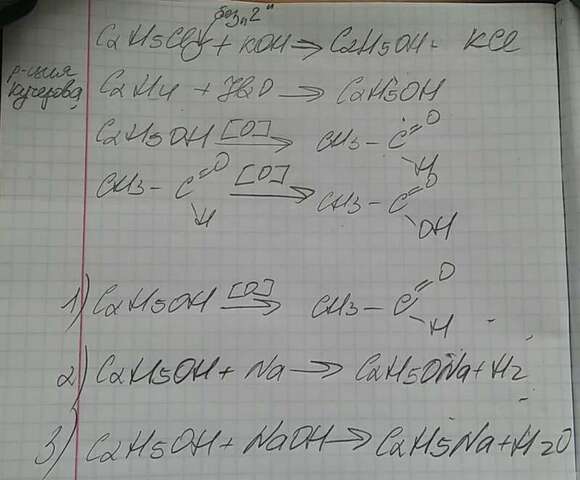 без "2"
C2H5Cl + KOH → C2H5OH + KCl
р-ция Кучерова
C2H4 + H2O → C2H5OH
C2H5OH [O] → CH3 - C =O H
CH3 - C =O H [O] → CH3 - C =O OH
1) C2H5OH [O] → CH3 - C =O H
2) C2H5OH + Na → C2H5ONa + H2
3) C2H5OH + NaOH → C2H5Na + H2O